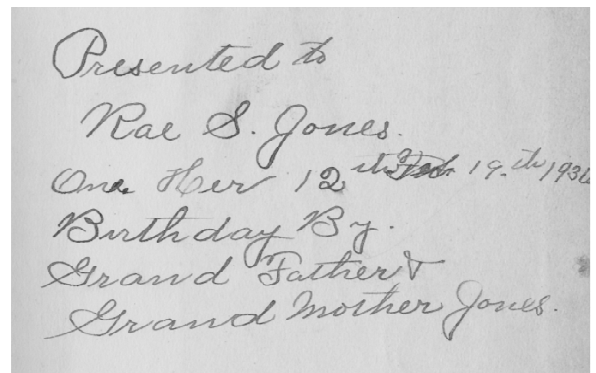 Presented to
Rae S. Jones.
One Her 12th Feb. 19-th 1936
Birthday By.
Grand Father &
Grand Mother Jones.